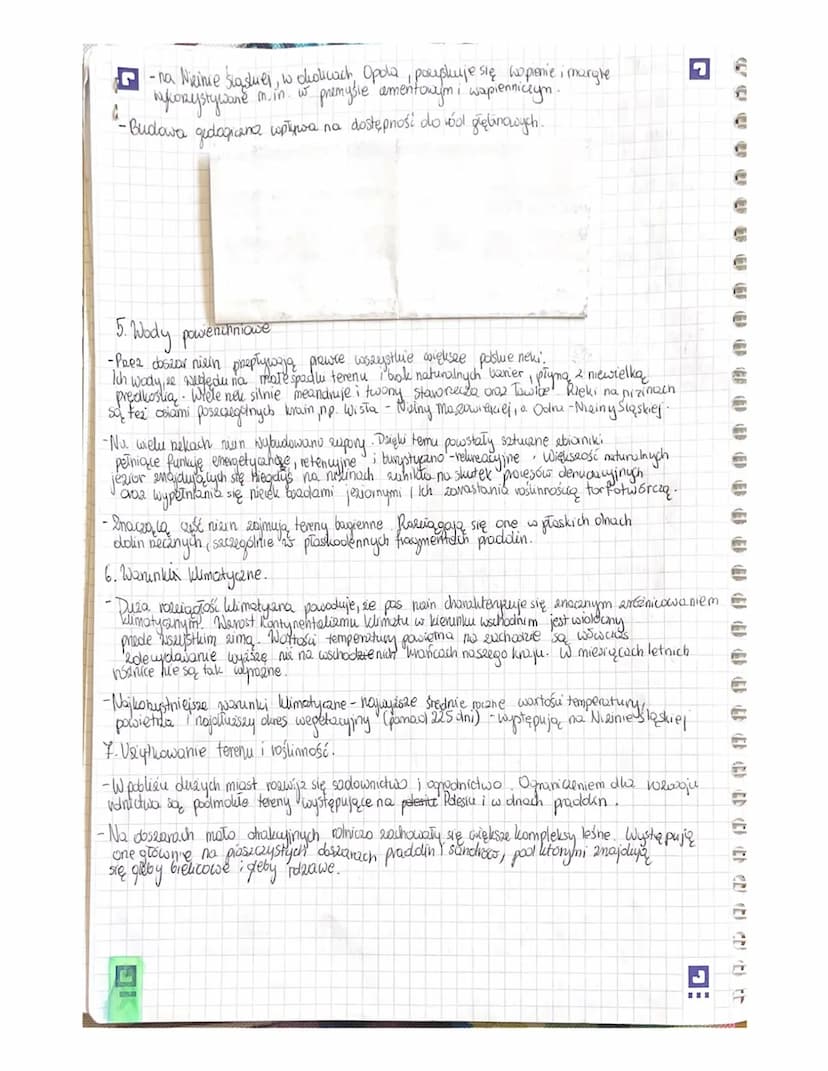 - na Nizinie Śląskiej, w okolicach Opola, pozyskuje się wapienie i margle
wykorzystywane m.in. w przemyśle cementowym i wapienniczym.
- Budowa geologiczna wpływa na dostępność do wód głębinowych.
5. Wody powierzchniowe
- Przez obszar nizin przepływają prawie wszystkie większe polskie rzeki.
Ich wody, ze względu na małe spadki terenu i brak naturalnych barier, płyną z niewielką
prędkością. Wiele rzek silnie meandruje i tworzy starorzecza oraz ławice. Rzeki na nizinach
są też osiami poszczególnych krain, np. Wisła - Niziny Mazowieckiej, a Odra - Niziny Śląskiej.
- Na wielu rzekach nizin wybudowano zapory. Dzięki temu powstały sztuczne zbiorniki
pełniące funkcję energetyczną, retencyjne i turystyczno-rekreacyjne. Większość naturalnych
jezior znajdujących się niegdyś na nizinach zanikła na skutek procesów denudacyjnych
oraz wypełniania się niecek osadami jeziornymi i ich zarastania roślinnością torfotwórczą.
- Znaczącą część nizin zajmują tereny bagienne. Rozciągają się one w płaskich dnach
dolin rzecznych, szczególnie w płaskodennych fragmentach pradolin.
6. Warunki klimatyczne.
- Duża rozciągłość klimatyczna powoduje, że pas nizin charakteryzuje się znacznym zróżnicowaniem
klimatycznym. Wzrost kontynentalizmu klimatu w kierunku wschodnim jest widoczny
przede wszystkim zimą. Wartości temperatury powietrza na zachodzie są wówczas
zdecydowanie wyższe niż na wschodzenich krańcach naszego kraju. W miesiącach letnich
różnice nie są tak wyraźne.
- Najkorzystniejsze warunki klimatyczne - najwyższe średnie roczne wartości temperatury
powietrza i najdłuższy okres wegetacyjny (ponad 225 dni) - występują na Nizinie Śląskiej
7. Użytkowanie terenu i roślinność.
- W pobliżu dużych miast rozwija się sadownictwo i ogrodnictwo. Ograniczeniem dla rozwoju
rolnictwa są podmokłe tereny występujące na Polesiu i w dnach pradolin.
- Na obszarach mało atrakcyjnych rolniczo zachowały się większe kompleksy leśne. Występują
one głównie na piaszczystych obszarach pradolin i sandrów, pod którymi znajdują
się gleby bielicowe i gleby rdzawe.